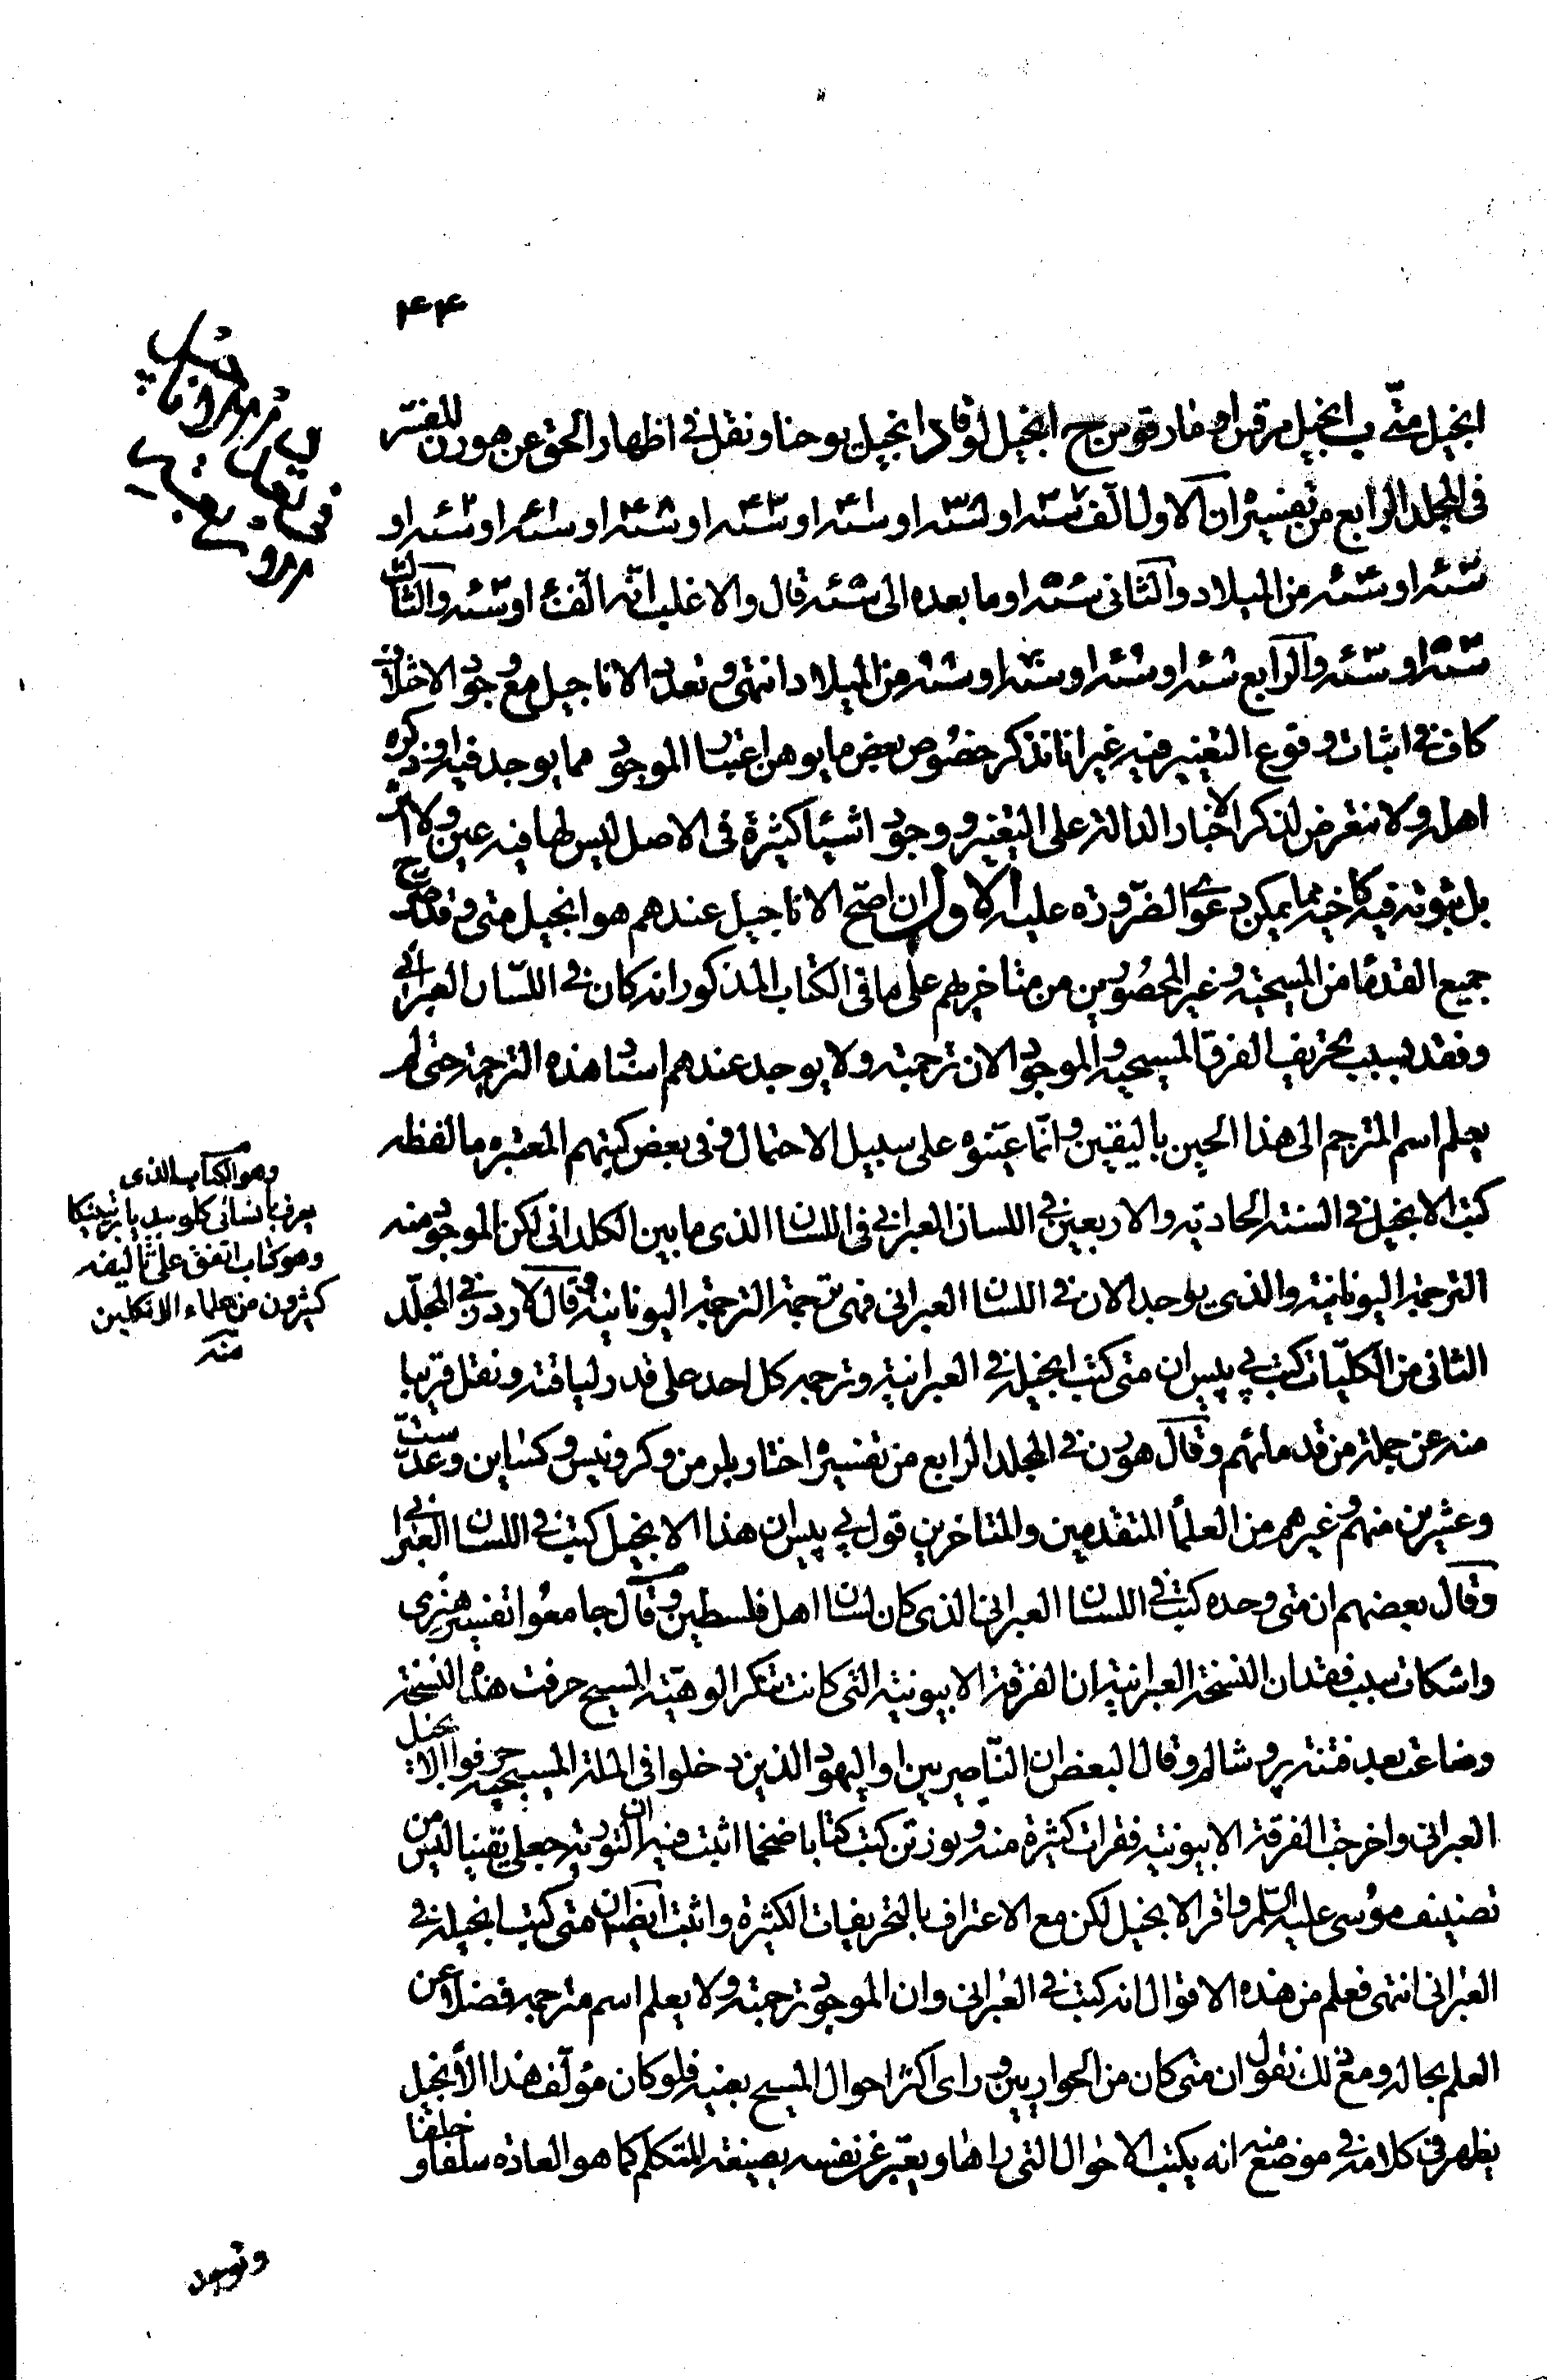 ۴۴
انجيل متّى ب انجيل مرقس او مارقوس ج انجيل لوقا د انجيل يوحنا و نقل فى اظهار الحق عن هورن المفسّر
فى المجلد الرابع من تفسيره ان الاول الّف
من الميلاد والثانى او ما بعده الى قال والاغلب انّه الّف او والثالث
او والرابع او او او من الميلاد انتهى و تعدد الاناجيل مع وجود الاختلاف
كاف فى اثبات وقوع التغيير فيه غير انا نذكر خصوص بعض ما يوهن اعتبار الموجود مما يوجد فيه او ذكره
اهله ولا نتعرض لذكر الاخبار الدالة على التغيير و وجود اشياء كثيرة فى الاصل ليس لها فيه عين ولا اثر
بل ثبوته فيه كاخيه مما يمكن دعوى الضرورة عليه الاول ان اصح الاناجيل عندهم هو انجيل متى وقد صرّح
جميع القدماء من المسيحية و غير المحصورين من متاخريهم على ما فى الكتاب المذكور انه كان فى اللسان العبرانى
وفقد بسبب تحريف الفرق المسيحية والموجود الان ترجمته ولا يوجد عندهم اسناد هذه الترجمة حتى لم
يعلم اسم المترجم الى هذا الحين باليقين وانّما عيّنوه على سبيل الاحتمال و فى بعض كتبهم المعتبرة ما لفظه
كتب الانجيل فى السنة الحادية والاربعين فى اللسان العبرانى فى اللسان الذى ما بين الكلدانى لكن الموجود منه
الترجمة اليونانية والذى يوجد الان فى اللسان العبرانى فهى ترجمة الترجمة اليونانية و قال لاردنر فى المجلّد
الثانى من الكليّات كتب پي پيس ان متى كتب انجيله فى العبرانية و ترجمه كل احد على قدر لياقته و نقل قريبا
منه عن جملة من قدمائهم و قال هورن فى المجلد الرابع من تفسيره اختار بلرمن و كروتيس و كسابن و عدّ ستّة
و عشرين منهم و غيرهم من العلماء المتقدمين والمتاخرين قول پي پيس ان هذا الانجيل كتب فى اللسان العبرانى
و قال بعضهم ان متى وحده كتب فى اللسان العبرانى الذى كان لسان اهل فلسطين و قال جامعوا تفسير هنرى
واسكات سبب فقدان النسخة العبرانية ان الفرقة الابيونية التى كانت تنكر الوهيّة المسيح حرفت هذه النسخة
وضاعت بعد فتنة يروشالم وقال البعض ان النّاصريين او اليهود الذين دخلوا فى الملة المسيحية حرفوا الانجيل
العبرانى واخرجت الفرقة الابيونية فقرات كثيرة منه و نورتن كتب كتابا ضخما اثبت فيه ان التورية جعلى يقينا ليس من
تصنيف موسى عليه السّلم واقر الانجيل لكن مع الاعتراف بالتحريفات الكثيرة واثبت ايضا ان متى كتب انجيله فى
العبرانى انتهى فعلم من هذه الاقوال انه كتب فى العبرانى وان الموجود ترجمته ولا يعلم اسم مترجمه فضلا عن
العلم بحاله و مع ذلك نقول ان متى كان من الحواريين و راى اكثر احوال المسيح بعينيه فلو كان مؤلّف هذا الانجيل
يظهر فى كلامه فى موضع منه انه يكتب الاحوال التى راها و يعبّر عن نفسه بصيغة المتكلم كما هو العادة سلفا و خلفا
وهو الكتاب الذى
يعرف بانسائى كلوبيديا برتنيكا
وهو كتاب اتفق على تاليفه
كثيرون من علماء الانكليس
منه